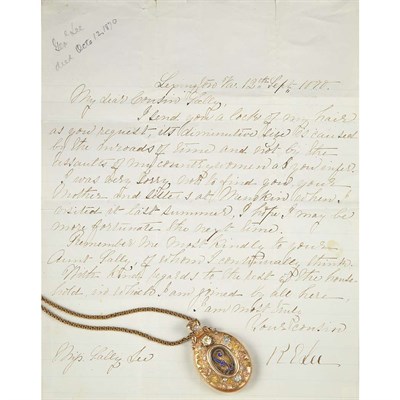 Gen Lee
died Octo 12, 1870
Lexington Va: 12th Sept 1870.
My dear Cousin Sally,
I send you a lock of my hair
as you request, its diminutive size is caused
by the inroads of time and not by the
assaults of my countrywomen as you infer.
I was very sorry not to find you, your
Mother and sisters at when I
visited it last summer. I hope I may be
more fortunate the next time.
Remember me most kindly to your
Aunt Sally, of whom I continually think
With kind regards to the rest of the house-
hold in which I am joined by all here
I am most truly
Your cousin
R E Lee
Miss Sally Lee